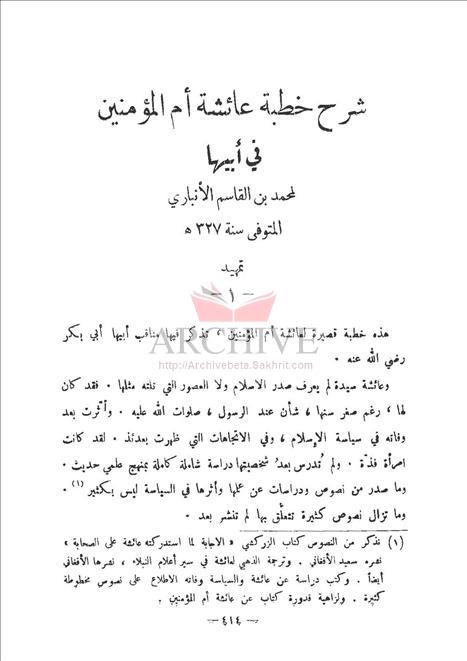 شرح خطبة عائشة أم المؤمنين
في أبيها
لمحمد بن القاسم الأنباري
المتوفى سنة ٣٢٧ ه
تمهيد
— ١ —
هذه خطبة قصيرة لعائشة أم المؤمنين ، تذكر فيها مناقب أبيها أبي بكر
رضي الله عنه .
ARCHIVE
http://Archivebeta.Sakhrit.com
وعائشة سيدة لم يعرف صدر الاسلام ولا العصور التي تلته مثلها . فقد كان
لها ، رغم صغر سنها ، شأن عند الرسول ، صلوات الله عليه . وأثّرت بعد
وفاته في سياسة الإسلام ، وفي الاتجاهات التي ظهرت بعدئذ . لقد كانت
امرأة فذّة . ولم تُدرس بعدُ شخصيتها دراسة شاملة كاملة بمنهج علمي حديث .
وما صدر من نصوص ودراسات عن علمها وأثرها في السياسة ليس بكثير (١) .
وما تزال نصوص كثيرة تتعلّق بها لم تنشر بعد .
(١) نذكر من النصوص كتاب الزركشي « الاجابة لما استدركته عائشة على الصحابة »
نشره سعيد الأفغاني . وترجمة الذهبي لعائشة في سير أعلام النبلاء ، نشرها الأفغاني
أيضاً . وكتب دراسة عن عائشة والسياسة وفاته الاطلاع على نصوص مخطوطة
كثيرة . ولزاهية قدورة كتاب عن عائشة أم المؤمنين .
— ٤١٤ —